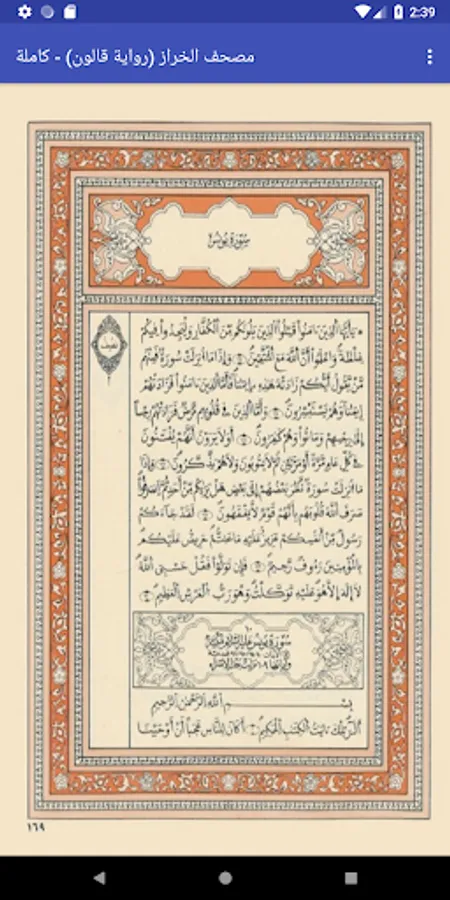 2:39
مصحف الخراز (رواية قالون) - كاملة
سورة يونس
يَٰأَيُّهَا اَ۬لذِينَ ءَامَنُواْ قَٰتِلُواْ اُ۬لذِينَ يَلُونَكُم مِّنَ اَ۬لْكُفّ۪ارِ وَلْيَجِدُواْ فِيكُمْ
غِلْظَةٗ وَاعْلَمُواْ أَنَّ اَ۬للَّهَ مَعَ اَ۬لْمُتَّقِينَ وَإِذَا مَا أُنزِلَتْ سُورَةٞ فَمِنْهُم
مَّنْ يَّقُولُ أَيُّكُمْ زَادَتْهُ هَٰذِهِۦ إِيمَٰناٗ فَأَمَّا اَ۬لذِينَ ءَامَنُواْ فَزَادَتْهُمْ
إِيمَٰناٗ وَهُمْ يَسْتَبْشِرُونَ وَأَمَّا اَ۬لذِينَ فِي قُلُوبِهِم مَّرَضٞ فَزَادَتْهُمْ رِجْساً
إِلَىٰ رِجْسِهِمْ وَمَاتُواْ وَهُمْ كَٰفِرُونَ أَوَلَا يَرَوْنَ أَنَّهُمْ يُفْتَنُونَ
فِي كُلِّ عَامٖ مَّرَّةً أَوْ مَرَّتَيْنِ ثُمَّ لَا يَتُوبُونَ وَلَا هُمْ يَذَّكَّرُونَ وَإِذَا
مَا أُنزِلَتْ سُورَةٞ نَّظَرَ بَعْضُهُمْ إِلَىٰ بَعْضٍ هَلْ يَر۪ىٰكُم مِّنْ أَحَدٖ ثُمَّ اَ۪نصَرَفُواْ
صَرَفَ اَ۬للَّهُ قُلُوبَهُم بِأَنَّهُمْ قَوْمٞ لَّا يَفْقَهُونَ لَقَدْ جَاءَكُمْ
رَسُولٞ مِّنْ أَنفُسِكُمْ عَزِيزٌ عَلَيْهِ مَا عَنِتُّمْ حَرِيصٌ عَلَيْكُم
بِالْمُؤْمِنِينَ رَءُوفٞ رَّحِيمٞ فَإِن تَوَلَّوْاْ فَقُلْ حَسْبِيَ اَ۬للَّهُ
لَا إِلَٰهَ إِلَّا هُوَ عَلَيْهِ تَوَكَّلْتُ وَهْوَ رَبُّ اُ۬لْعَرْشِ اِ۬لْعَظِيمِ
سورة يونس
بِسْمِ اِ۬للَّهِ اِ۬لرَّحْمَٰنِ اِ۬لرَّحِيمِ
أَلَٓر۪ تِلْكَ ءَايَٰتُ اُ۬لْكِتَٰبِ اِ۬لْحَكِيمِ أَكَانَ لِلنَّاسِ عَجَباً أَنْ أَوْحَيْنَا
١٦٩